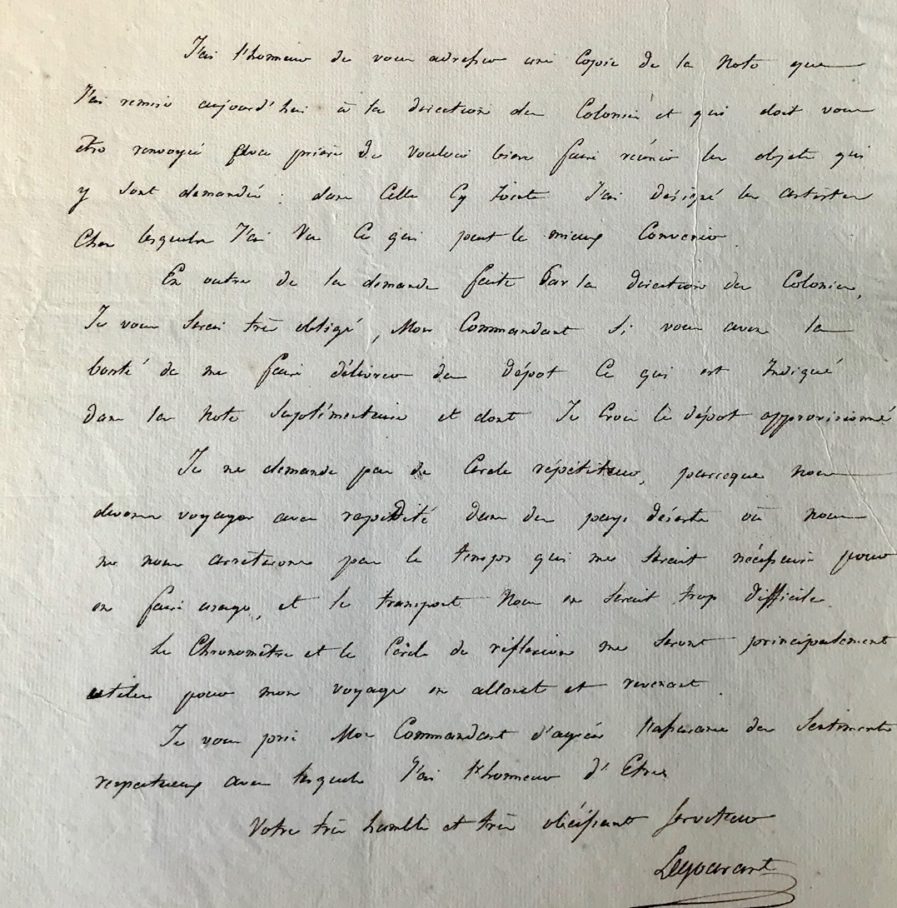 J'ai l'honneur de vous adresser une Copie de la Note que
J'ai remise aujourd'hui à la direction des Colonies et qui doit vous
être renvoyée avec prière de vouloir bien faire réunir les objets qui
y sont demandés : dans Celle Cy Jointe J'ai désigné les artistes
Chez lesquels J'ai Vu Ce qui peut le mieux Convenir.
En outre de la demande faite Par la direction des Colonies,
Je vous serai très obligé, Mon Commandant Si vous avez la
bonté de me faire délivrer du Dépot Ce qui est Indiqué
dans la Note Suplémentaire et dont Je Crois le dépot approvisionné
Je ne demande pas de Cercle répétiteur, parceque nous
devons voyager avec rapidité dans des pays déserts où nous
ne nous arreterons pas le temps qui me serait nécessaire pour
en faire usage, et le transport Nous en serait trop difficile.
Le Chronomètre et le Cercle de réflexion me seront principalement
utiles pour mon voyage en allant et revenant.
Je vous prie Mon Commandant d'agréer l'assurance des Sentiments
respectueux avec lesquels J'ai l'honneur d'Etre
Votre très humble et très obéissant Serviteur
Legoarant